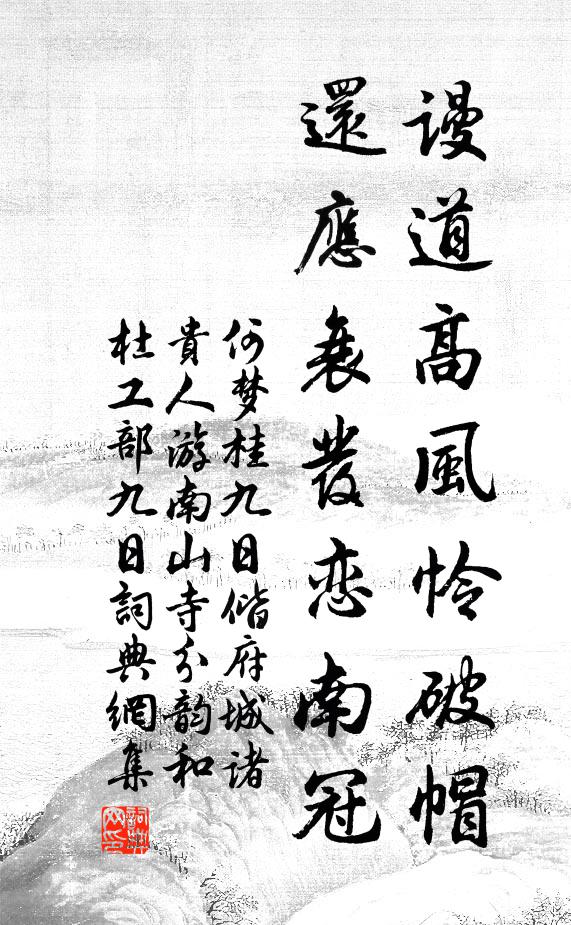 謾道高風怜破帽
還應衰發恋南冠
何梦桂九日偕府城诸
貴人游南山寺分韵和
杜工部九日詞典網集